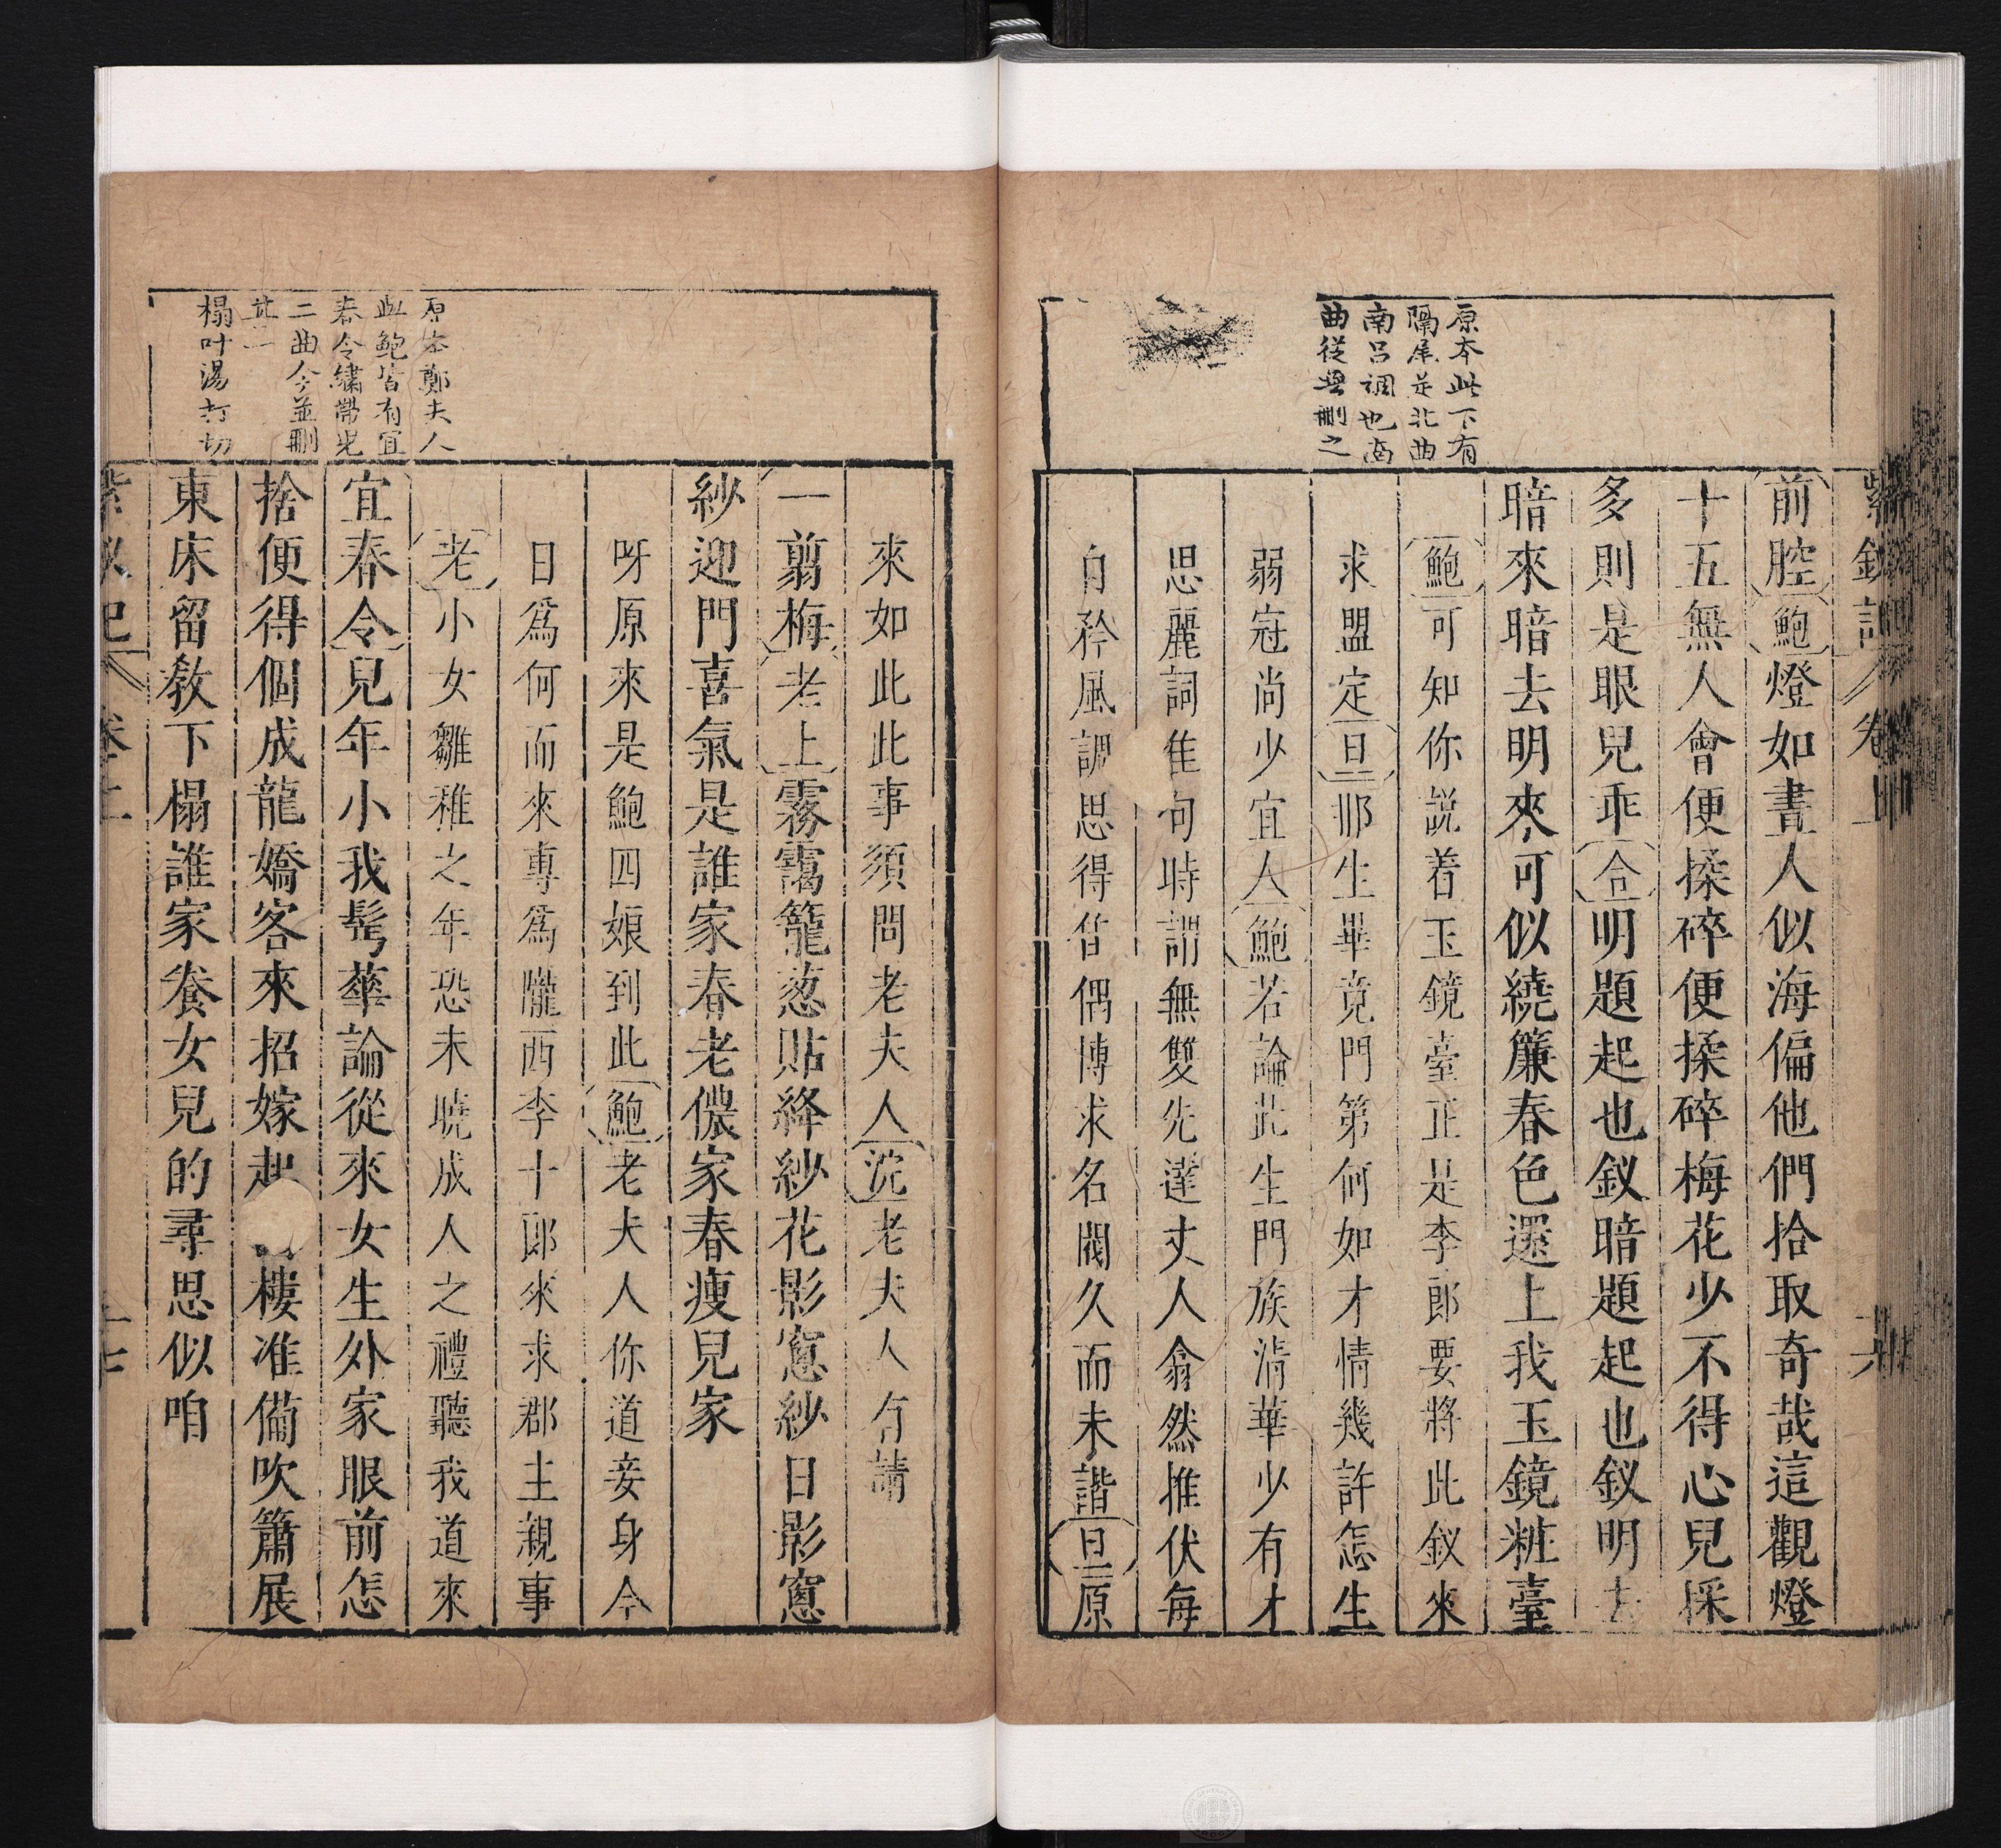 紫釵記 卷上 六
原本此下有
隔尾是北曲
南呂調也
曲從無刪之
前腔鮑燈如晝人似海偏他們拾取奇哉這觀燈
十五無人會便揉碎便揉碎梅花少不得心兒採
多則是眼兒乖合明題起也釵暗題起也釵明去
暗來暗去明來可似繞簾春色還上我玉鏡粧臺
鮑可知你説着玉鏡臺正是李郎要將此釵來
求盟定旦那生畢竟門第何如才情幾許怎生
弱冠尚少宜人鮑若論此生門族清華少有才
思麗詞佳句時謂無雙先達丈人翕然推伏每
自矜風調思得佳偶博求名閥久而未諧旦原
原本鄭夫人
與鮑皆有宜
春令繡帶兒
二曲今並刪
其一
榻叶湯打切
來如此此事須問老夫人浣老夫人有請
一翦梅老上霧靄籠葱貼絳紗花影窻紗日影窻
紗迎門喜氣是誰家春老儂家春瘦兒家
呀原來是鮑四娘到此鮑老夫人你道妾身今
日爲何而來專爲隴西李十郎來求郡主親事
老小女雛稚之年恐未曉成人之禮聽我道來
宜春令兒年小我髩華論從來女生外家眼前怎
捨便得個成龍嬌客來招嫁起樓准備吹簫展
東床留敎下榻誰家養女兒的尋思似咱